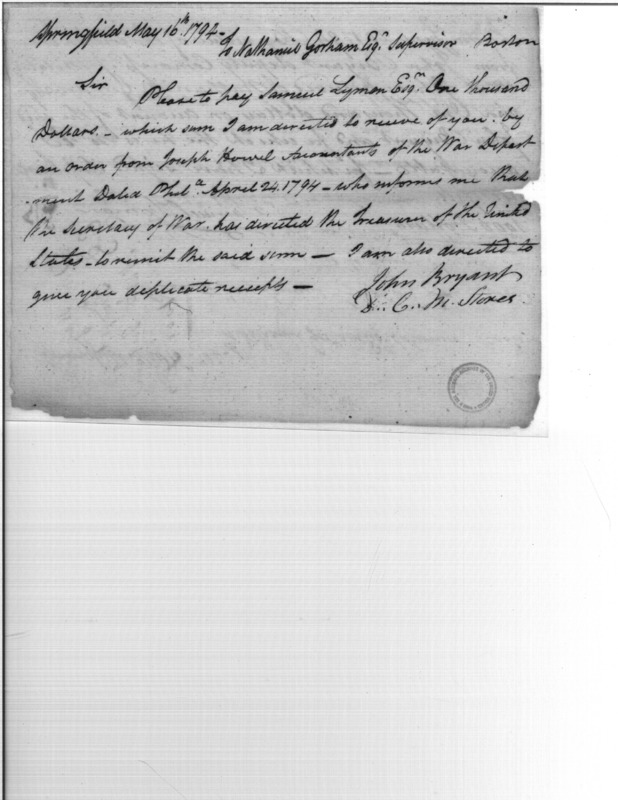 Springfield May 16th 1794 -
To Nathaniel Gorham Esqr Supervisor Boston
Sir Please to pay Samuel Lyman Esqr. One thousand
Dollars - which sum I am directed to receive of you. by
an order from Joseph Howel Accountants of the War Depart
-ment Dated Phila. April 24. 1794 - who informs me that
the Secretary of War. has directed the Treasurer of the United
States - to remit the said sum - I am also directed to
give you duplicate receipts -
John Bryant
D.. C.. M. Stores